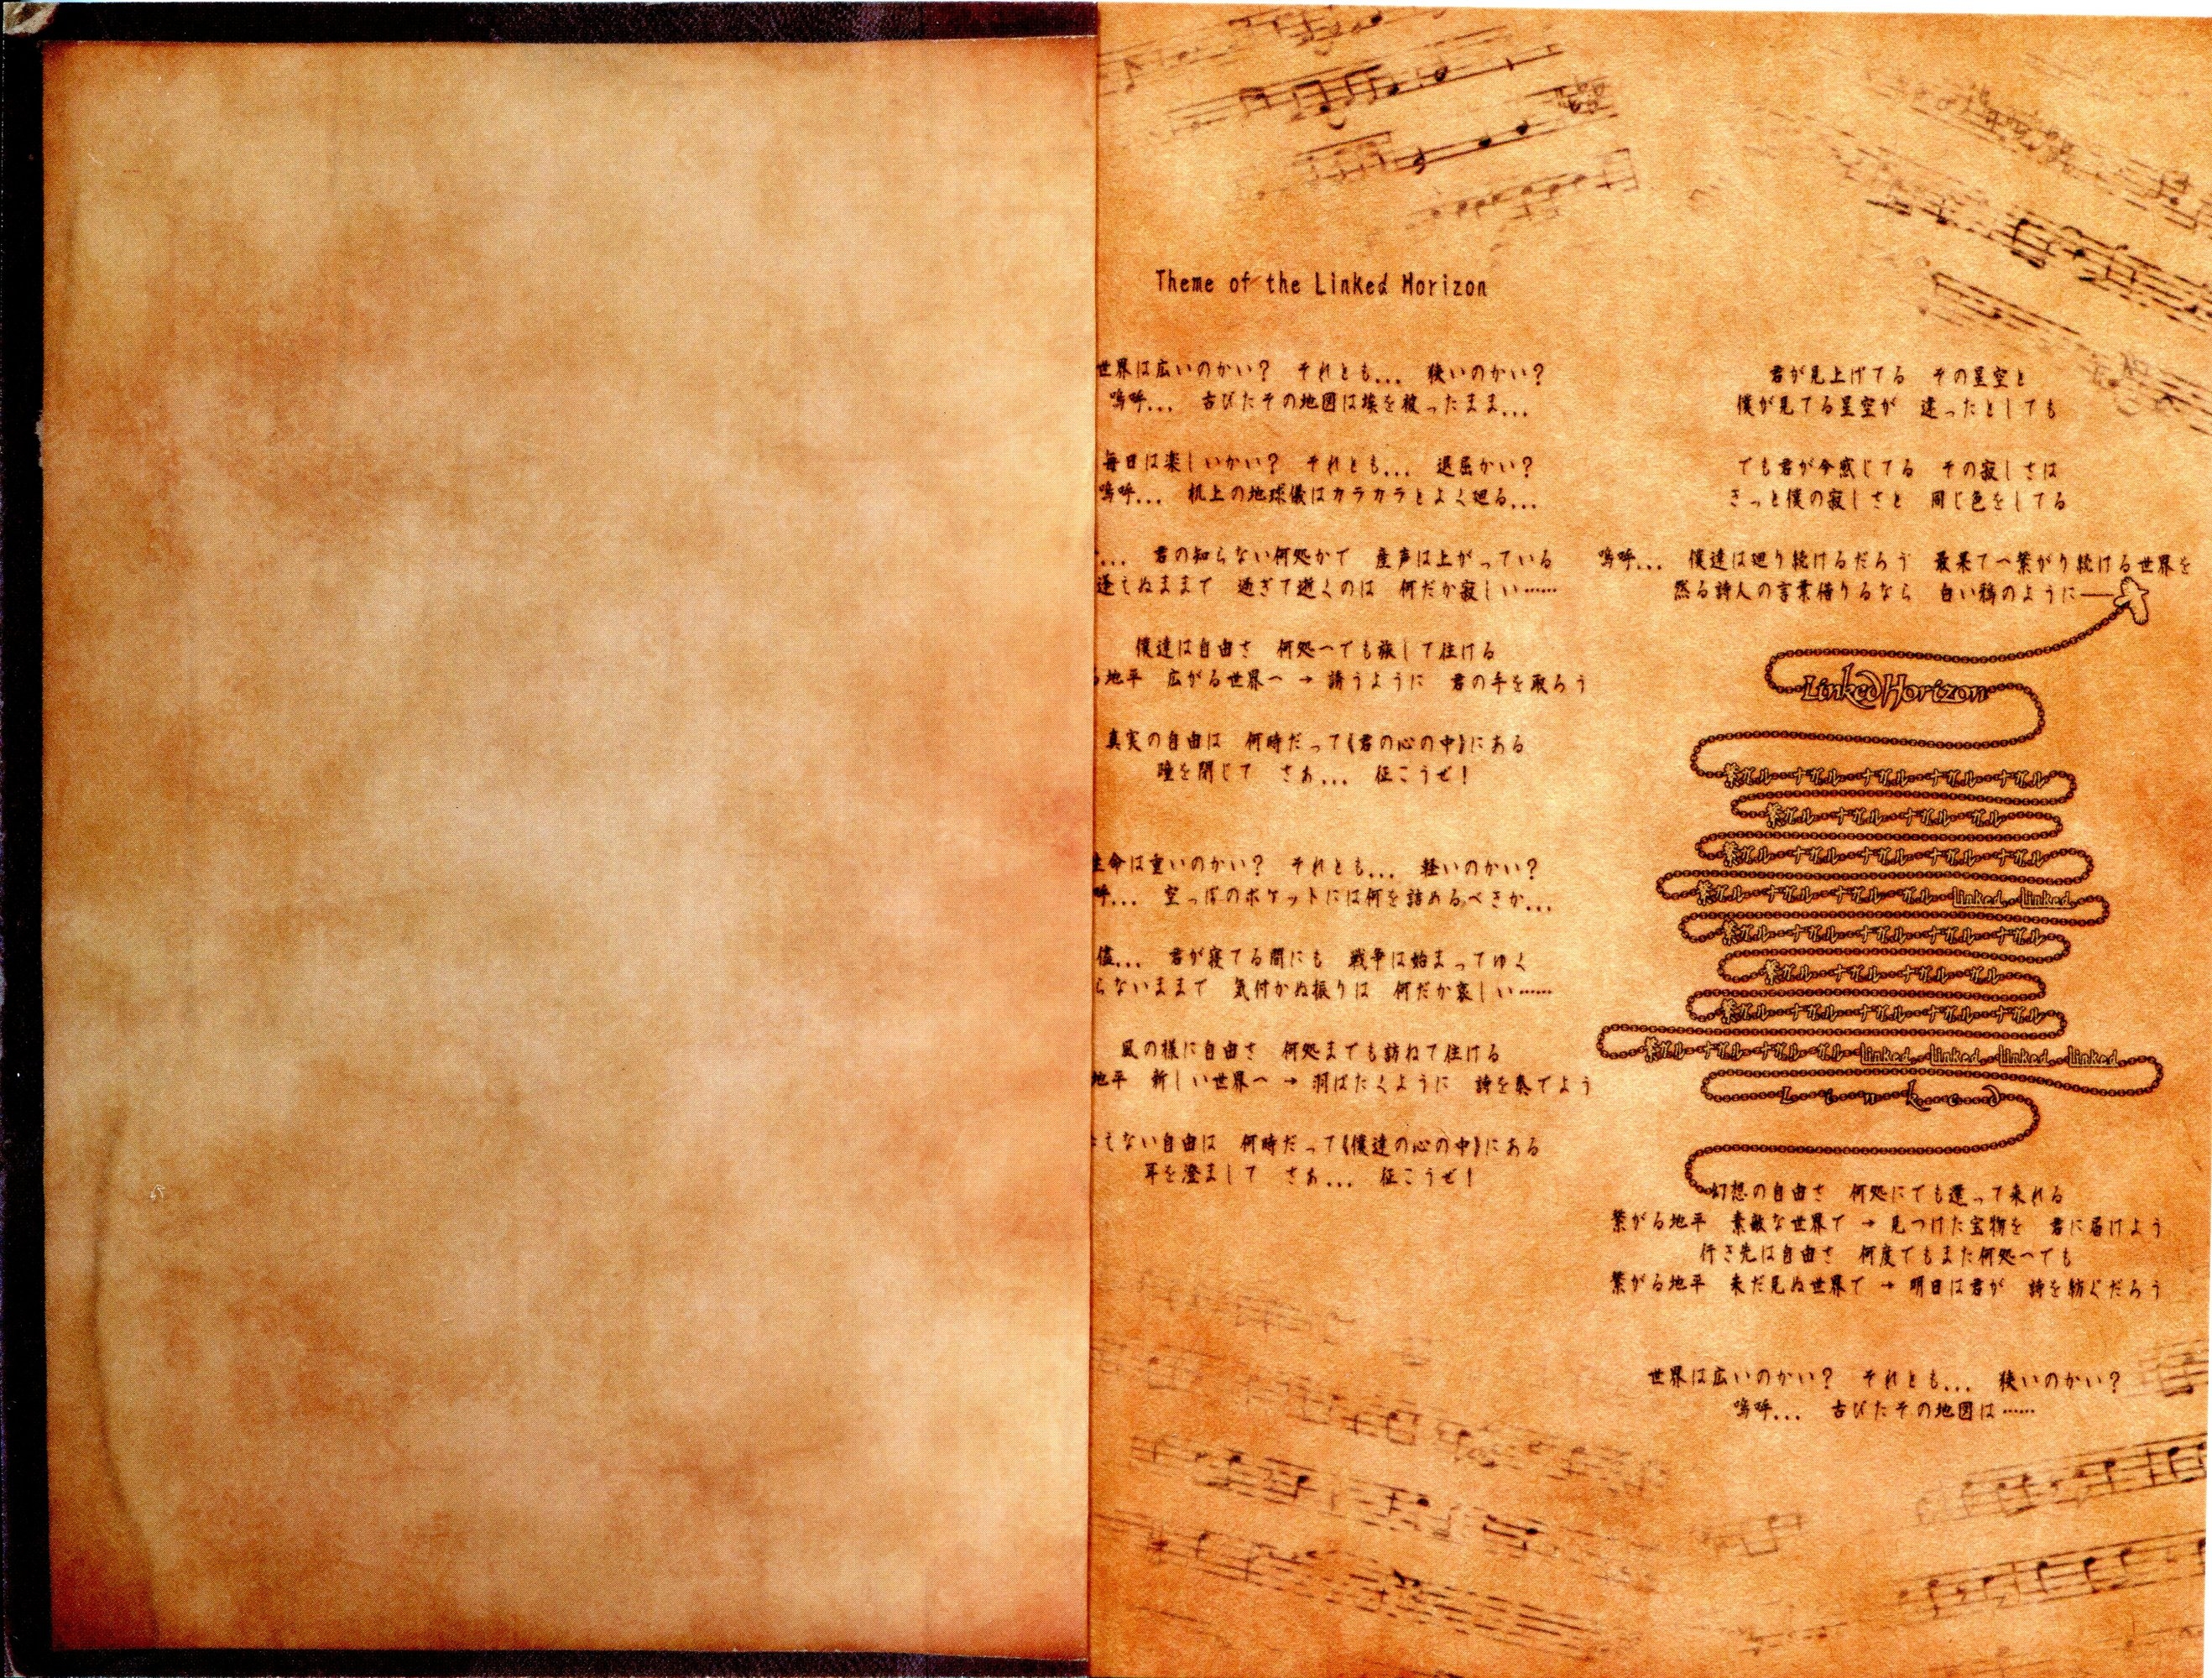 Theme of the Linked Horizon
世界は広いのかい？　それとも...　狭いのかい？
嗚呼...　古びたその地図は埃を被ったまま...
毎日は楽しいかい？　それとも...　退屈かい？
嗚呼...　机上の地球儀はカラカラとよく廻る...
...　君の知らない何処かで　産声は上がっている
逢えぬままで　過ぎて逝くのは　何だか寂しい……
僕達は自由さ　何処へでも旅して往ける
る地平　広がる世界へ → 誘うように　君の手を取ろう
真実の自由は　何時だって《君の心の中》にある
瞳を閉じて　さあ...　征こうぜ！
生命は重いのかい？　それとも...　軽いのかい？
呼...　空っぽのポケットには何を詰めるべきか...
儘...　君が寝てる間にも　戦争は始まってゆく
らないままで　気付かぬ振りは　何だか哀しい……
風の様に自由さ　何処までも訪ねて往ける
地平　新しい世界へ → 羽ばたくように　詩を奏でよう
えない自由は　何時だって《僕達の心の中》にある
耳を澄まして　さあ...　征こうぜ！
君が見上げてる　その星空と
僕が見てる星空が　違ったとしても
でも君が今感じてる　その寂しさは
きっと僕の寂しさと　同じ色をしてる
嗚呼...　僕達は廻り続けるだろう　最果てへ繋がり続ける世界を
然る詩人の言葉借りるなら　白い鴉のように──
Linked Horizon
繋ガル・ナガル・ナガル・ナガル・ナガル
繋ガル・ナガル・ナガル・ガル
繋ガル・ナガル・ナガル・ナガル・ナガル
繋ガル・ナガル・ナガル・ガル・linked・linked
繋ガル・ナガル・ナガル・ナガル・ナガル
繋ガル・ナガル・ナガル・ガル
繋ガル・ナガル・ナガル・ナガル・ナガル
繋ガル・ナガル・ナガル・ガル・linked・linked・linked・linked
Linked
幻想の自由さ　何処にでも還って来れる
繋がる地平　素敵な世界で → 見つけた宝物を　君に届けよう
行き先は自由さ　何度でもまた何処へでも
繋がる地平　未だ見ぬ世界で → 明日は君が　詩を紡ぐだろう
世界は広いのかい？　それとも...　狭いのかい？
嗚呼...　古びたその地図は……